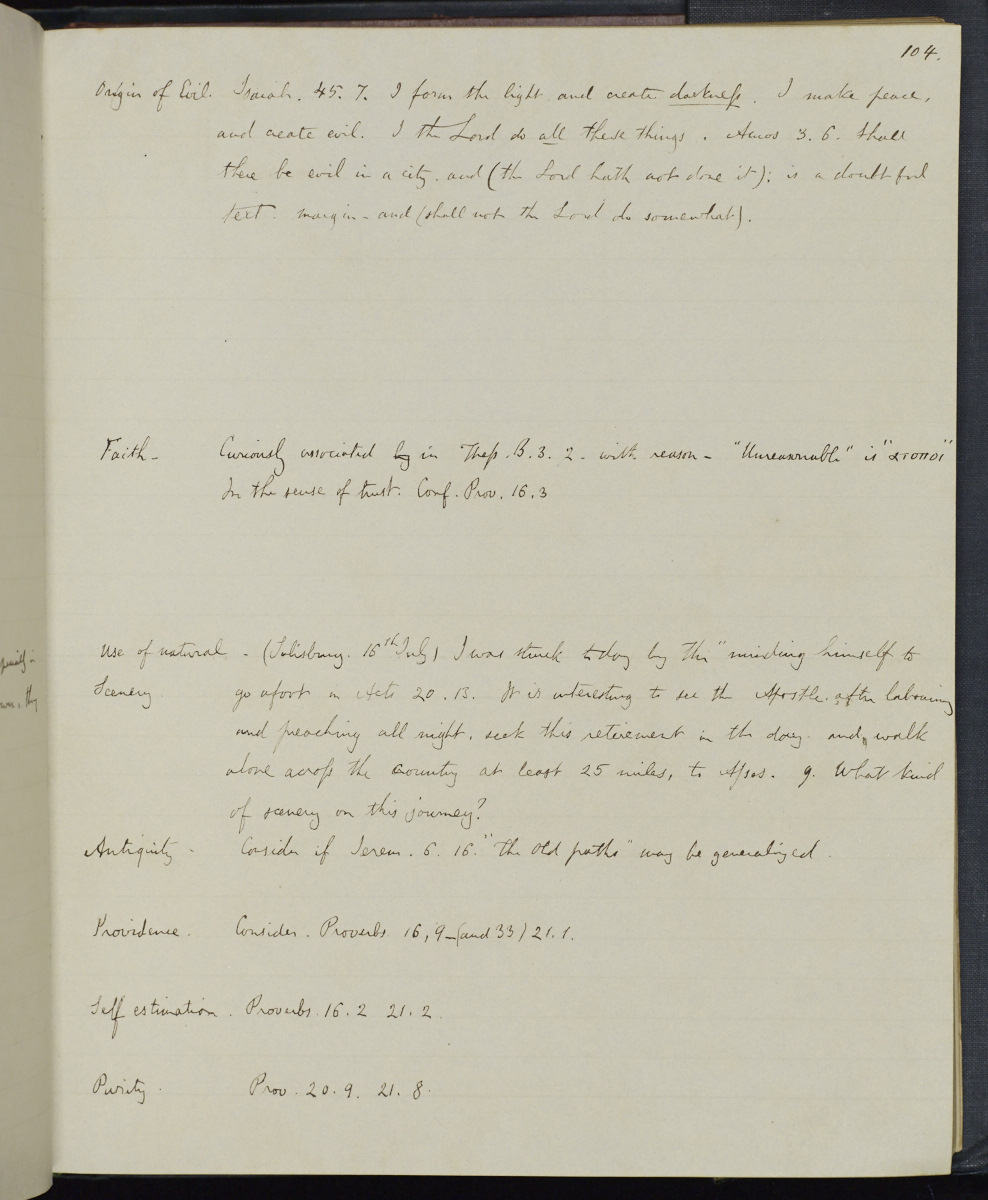 104.
Origin of Evil. Isaiah. 45. 7. I form the light and create darkness. I make peace,
and create evil. I the Lord do all these things. Amos 3. 6. Shall
there be evil in a city. and (the Lord hath not done it): is a doubtful
text. margin - and (shall not the Lord do somewhat).
Faith - Curiously associated by in Thess. B. 3. 2 - with reason - "Unreasonable" is "ατοποι"
In the sense of trust. Conf. Prov. 16. 3
Use of natural - (Salisbury. 16th July) I was struck today by the "minding himself to
Scenery. go afoot in Acts 20. 13. It is interesting to see the Apostle. after labouring
and preaching all night, seek this retirement in the day. and, walk
alone across the country at least 25 miles, to Assos. q. What kind
of scenery on this journey?
Antiquity - Consider if Jerem. 6. 16. "the old paths" may be generalized.
Providence. Consider. Proverbs 16, 9 - (and 33) 21. 1.
Self estimation. Proverbs. 16. 2 21. 2.
Purity. Prov. 20. 9. 21. 8.